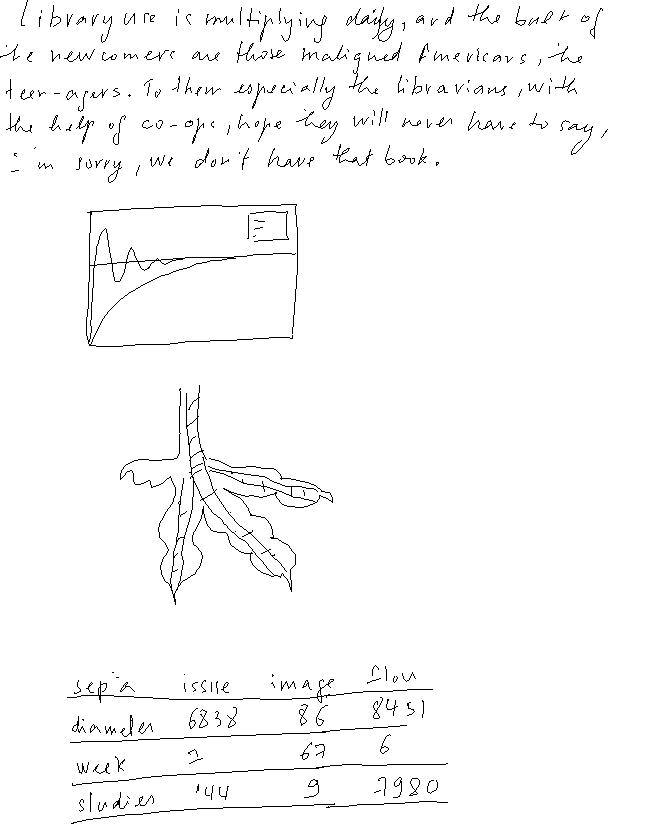 Library use is multiplying daily, and the bulk of
the newcomers are those maligned Americans, the
teen-agers. To them especially the librarians, with
the help of co-ops, hope they will never have to say,
I'm sorry, we don't have that book.
sepia issue image flow
diameter 6838 86 8451
week 1 67 6
studies '44 9 7980